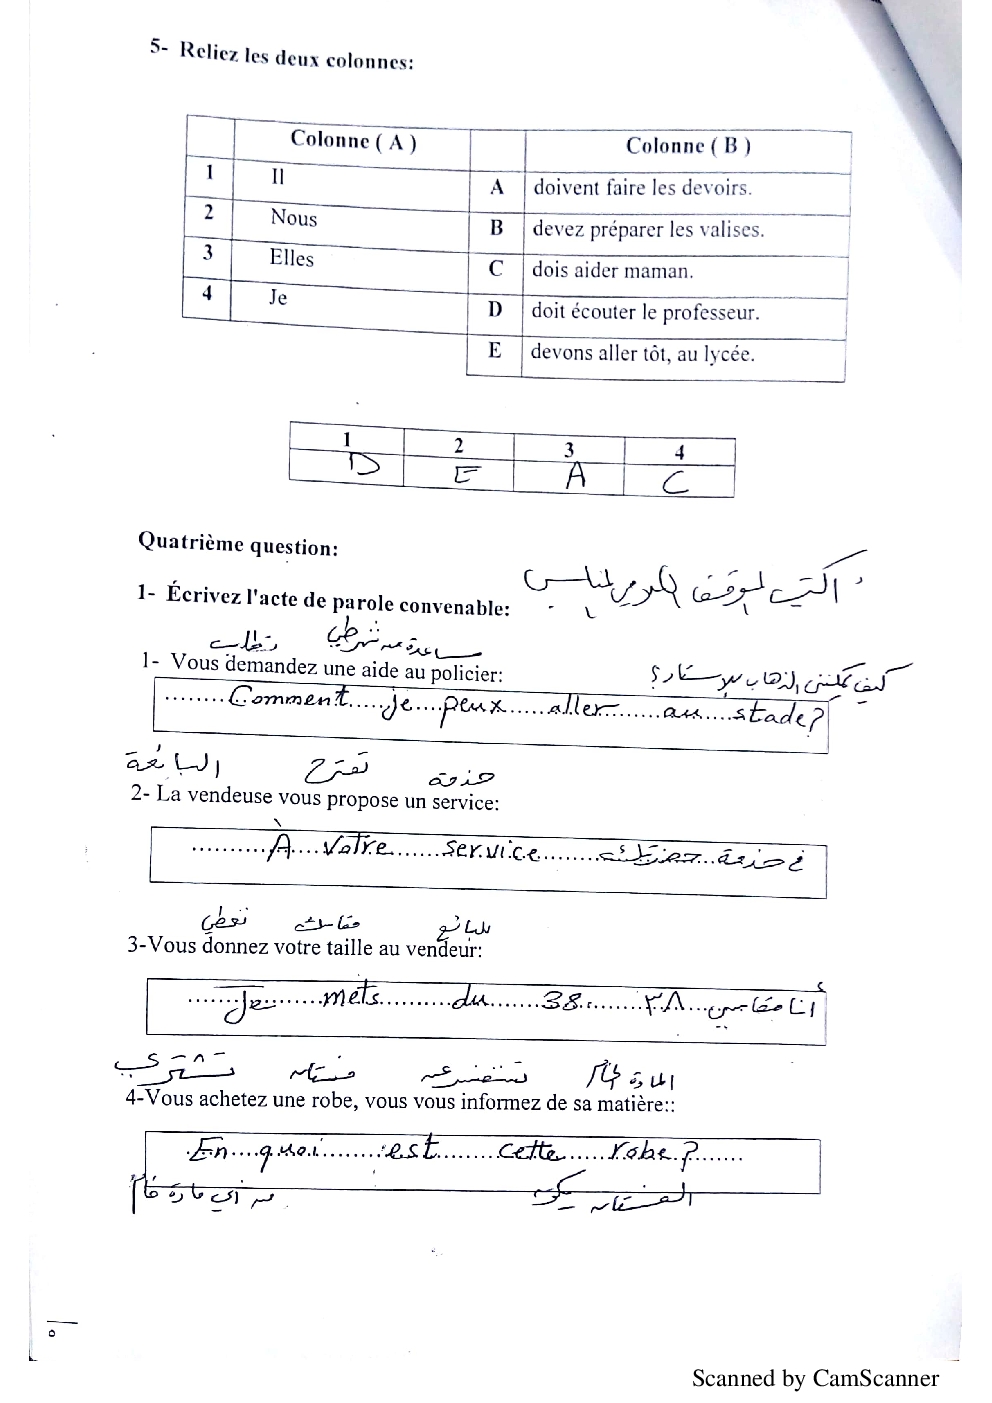 5- Reliez les deux colonnes:
Colonne ( A ) Colonne ( B )
1 Il A doivent faire les devoirs.
2 Nous B devez préparer les valises.
3 Elles C dois aider maman.
4 Je D doit écouter le professeur.
E devons aller tôt, au lycée.
1 2 3 4
D E A C
Quatrième question:
اكتب الموقف الكلامي المناسب
1- Écrivez l'acte de parole convenable:
تطلب مساعدة من شرطي
1- Vous demandez une aide au policier:
كيف يمكنني الذهاب للإستاد؟
Comment je peux aller au stade?
البائعة تقترح خدمة
2- La vendeuse vous propose un service:
À votre service في خدمة حضرتك
تعطي مقاسك للبائع
3-Vous donnez votre taille au vendeur:
Je mets du 38. أنا مقاسي ٣٨
تشتري فستان تستفسر عن المادة الخام
4-Vous achetez une robe, vous vous informez de sa matière::
En quoi est cette robe?
من أي مادة خام يكون الفستان
٥
Scanned by CamScanner